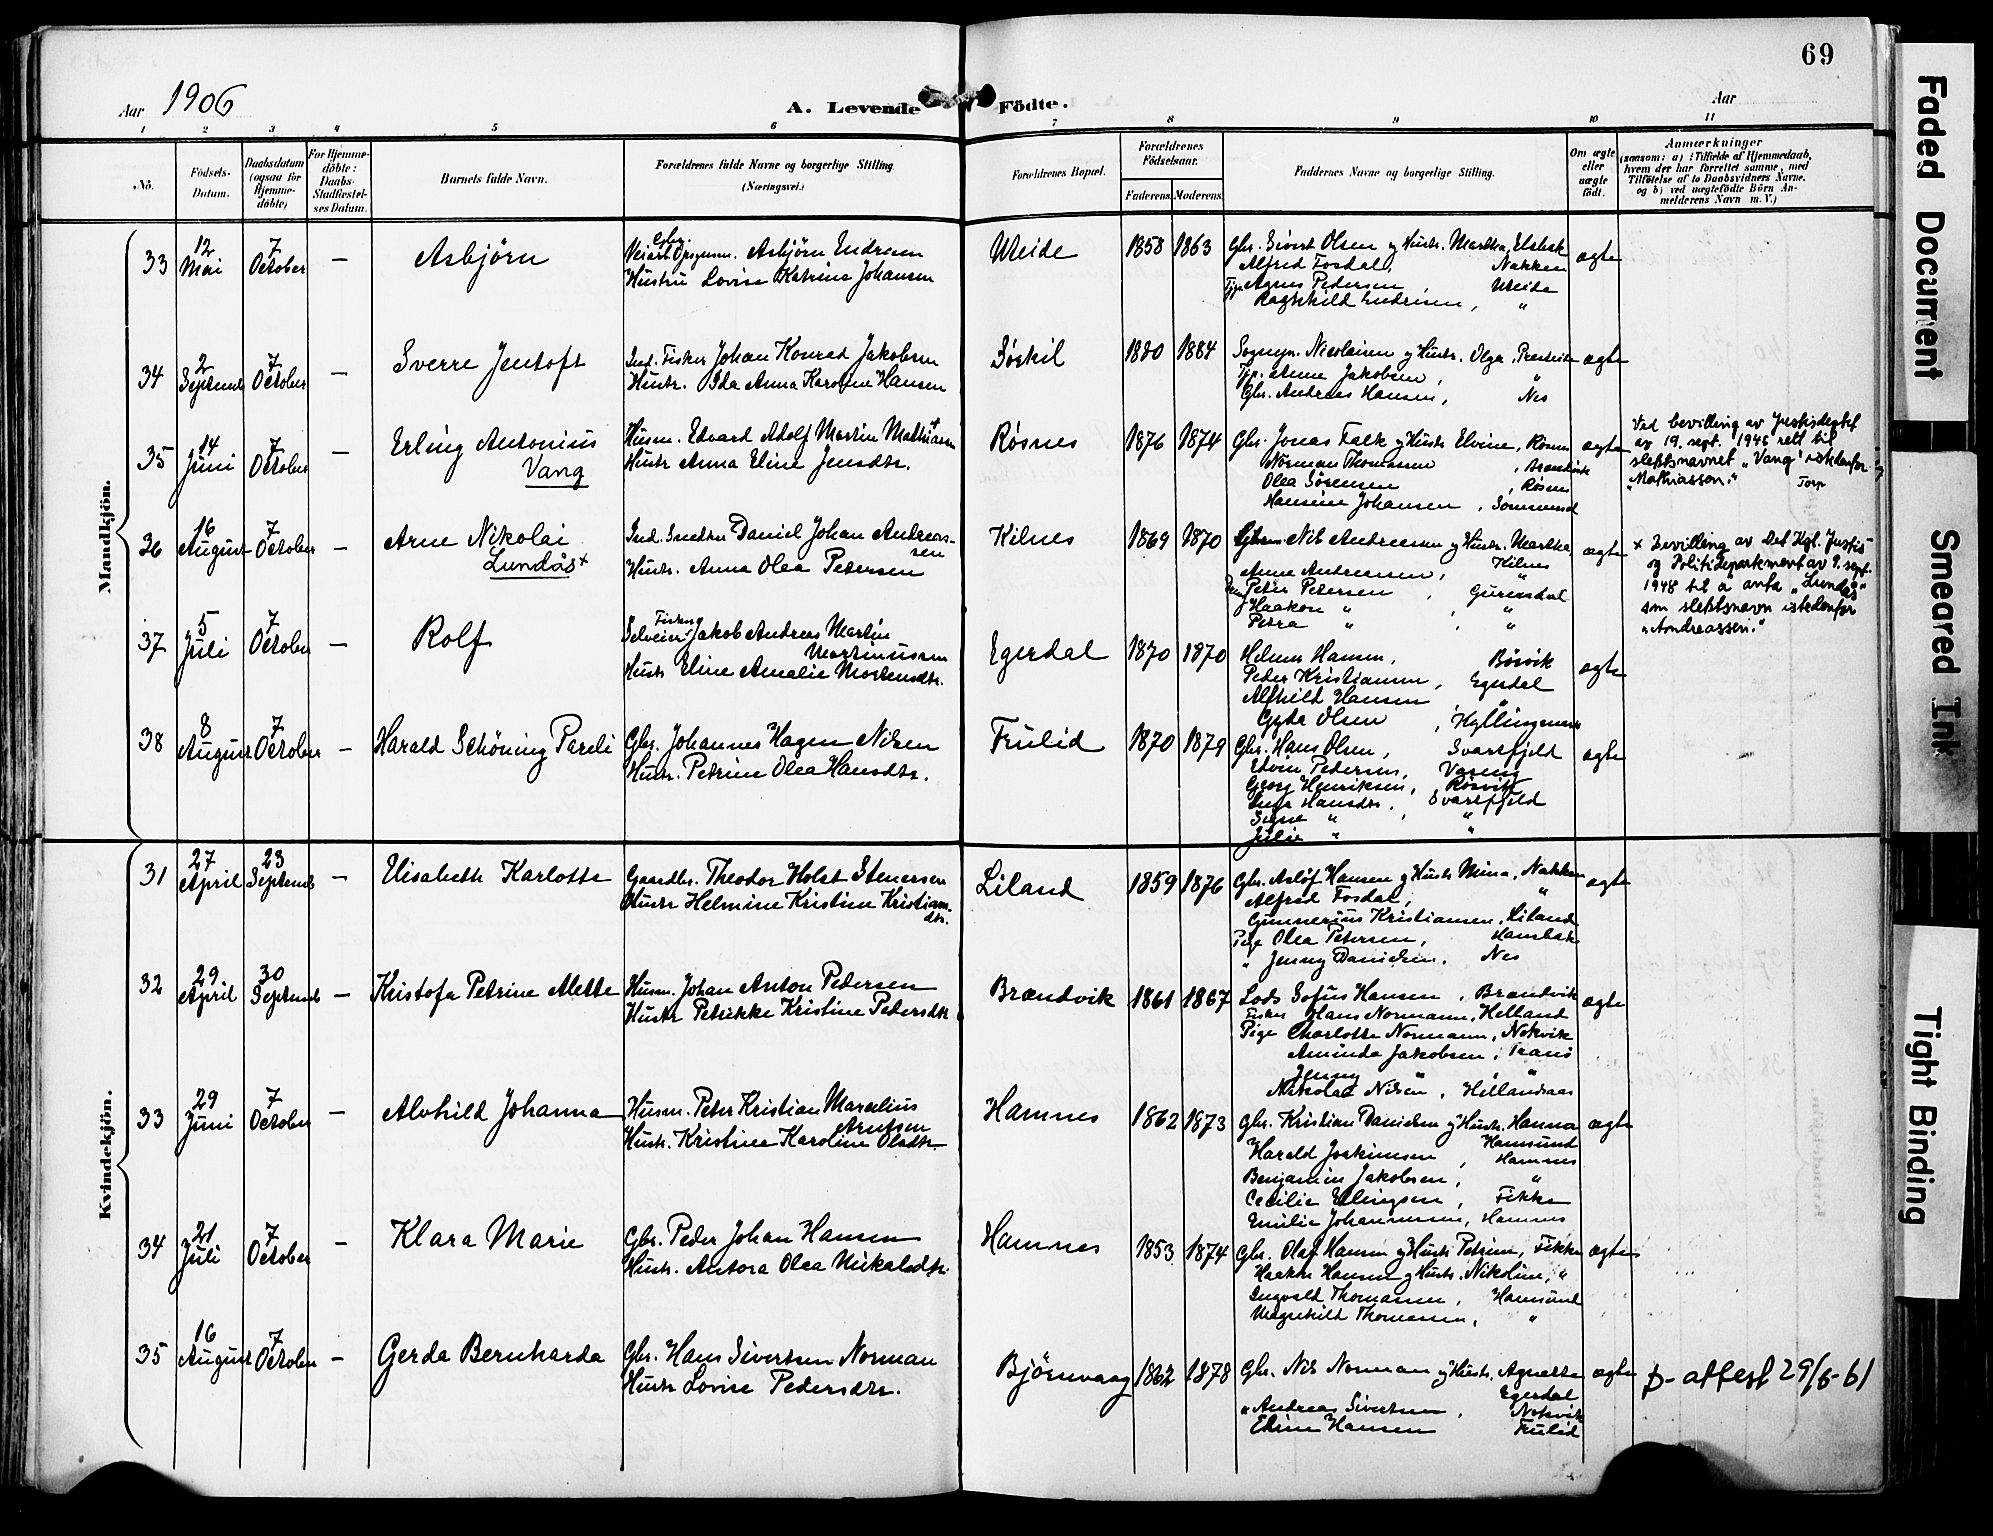 69
Aar 1906
A. Levende Födte.
Aar
1 2 3 4 5 6 7 8 9 10 11
Nö.
Födsels-
Datum.
Daabsdatum
(ogsaa for
Hjemme-
döbte)
For Hjemme-
döbte:
Daabs-
Stadfæstel-
ses Datum.
Barnets fulde Navn.
Forældrenes fulde Navne og borgerlige Stilling.
(Næringsvei.)
Forældrenes Bopæl.
Forældrenes
Födselsaar.
Faderens. Moderens.
Faddernes Navne og borgerlige Stilling.
Om ægte
eller
uægte
født.
Anmærkninger
(saasom: a) i Tilfælde af Hjemmedaab,
hvem der har forrettet samme, med
Tilföielse af to Daabsvidners Navne.
og b) ved uægtefödte Börn An-
melderens Navn m. V.)
Mandkjön.
33
12
Mai
7
October
—
Asbjörn
Gbr.
Asbjörn Endresen
Hustru Lovise Katrina Johansen
Uleide
1858 1863
Gbr. Sivert Olsen og Hustr. Martha Elsbak
Alfred Fosdal, Nakken
Agnes Pedersen, Uleide
Ragnhild Endresen, "
ægte
34
2
Septemb
7
October
—
Sverre Jentoft
Ind. Fisker Johan Konrad Jakobsen
Hustr. Ida Anna Karoline Hansen
Sörkil
1880 1884
Nicolaisen og Hustr. Olga
Anne Jakobsen, "
Gbr. Andreas Hansen, Nes
ægte
35
14
Juni
7
October
—
Erling Antonius
Vang
Husm. Edvard Adolf Martin Mathiassen
Hustr Anna Eline Jensdtr.
Røsnes
1876 1874
Gbr. Jonas Falk og Hustr Elvine, Røsnes
Norman Thomassen
Olea Sörensen, Røsnes
Hansine Johansen,
ægte
Ved bevilling av Justisdeptet
av 19. sept. 1945 rett til
slektsnavnet "Vang" istedenfor
"Mathiassen."
36
16
August
7
October
—
Arne Nikolai
Lundås+
Ind. Snedker Daniel Johan Andreas-
sen
Hustr. Anna Olea Petersen
Kilnes
1869 1870
Nils Andreasen og Hustr. Martha,
Anne Andreasen, Kilnes
Peter Petersen, Gurensdal
Haakon " , "
Petra " , "
ægte
+ Bevilling av Det Kgl. Justis-
og Politidepartement av 9. sept.
1948 til å anta "Lundås"
som slektsnavn istedenfor
"Andreassen."
37
5
Juli
7
October
—
Rolf
Fisker og
Selveier Jakob Andreas Martin
Martinussen
Hustr Eline Amalie Mortensdtr.
Egerdal
1870 1870
Helmer Hansen, Bösvik
Peder Kristiansen, Egerdal
Alfhild Hansen "
Gyda Olsen
ægte
38
8
August
7
October
—
Harald Schöning Pareli
Gbr. Johannes Hagen Nilsen
Hustr. Petrine Olea Hansdtr.
Frulid
1870 1879
Gbr. Hans Olsen, Svartfjeld
Edvin Pedersen,
Georg Henriksen, Rösvik
Hansdtr, Svartfjeld
Signe " , "
Julie " "
ægte
Kvindekjön.
31
27
April
23
Septemb
—
Elisabeth Karlotte
Gaardbr. Theodor Holst Stenersen
Hustr Helmine Kristine Kristians-
dtr.
Liland
1859 1876
Gbr. Aslöf Hansen og Hustr Mina, Nakken
Alfred Fosdal, "
Gunnerius Kristiansen, Liland
Pige Olea Petersen, Hamsbak
" Jenny Danielsen, Nes
ægte
32
29
April
30
Septemb
—
Kristofa Petrine Alette
Husm. Johan Anton Pedersen
Hustr Petrikke Kristine Pedersdtr
Brændvik
1861 1867
Lods Sofus Hansen, Brændvik
Fisker Hans Normann, Helland
Pige Charlotte Normann, Nekvik
Aminda Jakobsen, Tranö
Jenny " , "
Nikolai Nilsen, Hellandsaas
ægte
33
29
Juni
7
October
—
Alvhild Johanna
Husm. Peter Kristian Marselius
Arntsen
Hustr. Kristine Karoline Olsdtr.
Hamnes
1862 1873
Gbr. Kristian Danielsen og Hustr. Hanna
Hamsund
Harald Joakimsen, Hamnes
Benjamin Jakobsen, "
Cecilie Ellingsen, Fikke
Emilie Johannesen, Hamnes
ægte
34
21
Juli
7
October
—
Klara Marie
Gbr. Peder Johan Hansen
Hustr. Antora Olea Nickolsdtr.
Hamnes
1853 1874
Gbr. Olaf Hansen og Hustr Petrine, Fikke
Haakon Hansen og Hustr. Nikoline, "
Ingvald Thomassen, Hamsund
Magnhild Thomassen, "
ægte
35
16
August
7
October
—
Gerda Bernharda
Gbr. Hans Sivertsen Norman
Hustr Lovise Pedersdtr.
Björnvaag
1862 1878
Gbr. Nils Norman og Hustr. Agnette
Egerdal
" Andreas Sivertsen, Nekvik
Edine Hansen Frulid
ægte
p-attest 29/6-61
Faded Document
Smeared Ink
Tight Binding